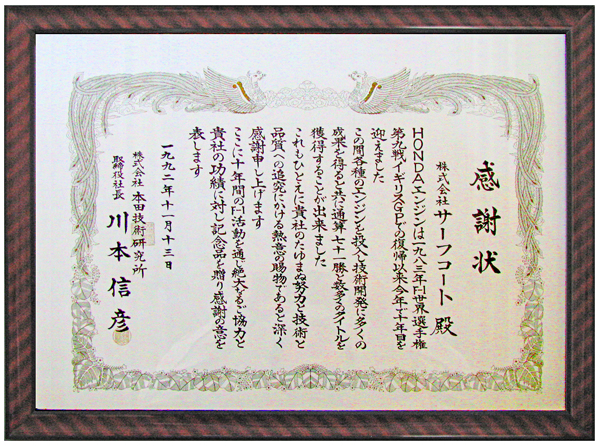 感謝状
株式会社 サーフコート 殿
HONDAエンジンは一九八三年F-1世界選手権
第九戦イギリスGPでの復帰以来今年で十年目を
迎えました
この間各種のエンジンを投入し技術開発に多くの
成果を得ると共に通算七十一勝と数多くのタイトルを
獲得することが出来ました
これもひとえに貴社のたゆまぬ努力と技術と
品質への追究にかける熱意の賜物であると深く
感謝申し上げます
ここに十年間のF-1活動を通じ絶大なるご協力と
貴社の功績に対し記念品を贈り感謝の意を
表します
一九九二年十一月十三日
株式会社 本田技術研究所
取締役社長 川本信彦